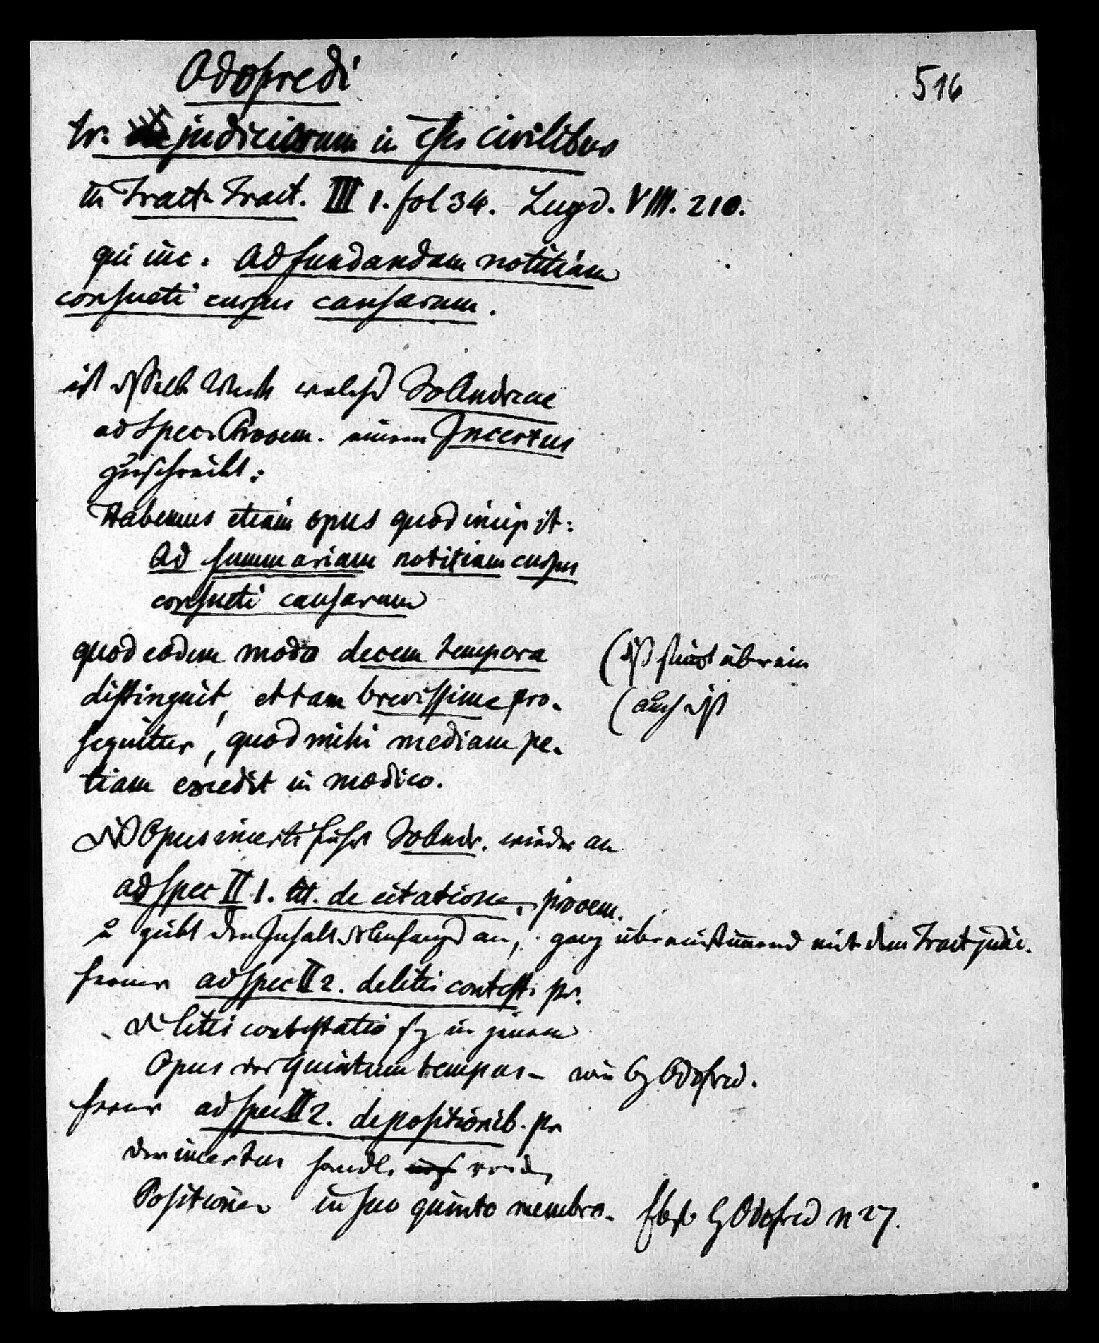 Odofredi
516
tr. judiciorum in csis civilibus
in Tract. Tract. III 1. fol 34. Lugd. VIII. 210.
qui inc. Ad fundandam notitiam
consueti cursus causarum.
ist dsselb Werk welchs Jo Andreae
ad Spec. Prooem. einem Incertus
zuschreibt:
Habemus etiam opus quod incipit:
Ad summariam notitiam cursus
consueti causarum
quod eodem modo decem tempora
(dß stimmt überein
distinguit, et tam brevissime pro-
(auch ist
sequitur, quod mihi mediam pe-
tiam excedit in modico.
Opus incerti führt Jo Andr. wieder an
ad spec II 1. tit. de citatione, prooem.
u gibt den Inhalt d Anfangs an, ganz übereinstimmend mit dem Tract judic.
ferner ad spec II 2. de litis contest. pr.
litis contestatio in jenem
Opus das quintum tempus - wie Odofred.
ferner ad spec II 2. de positionib. pr
der incertus handle von den
Positionen in suo quinto membro. Odofred n 27.